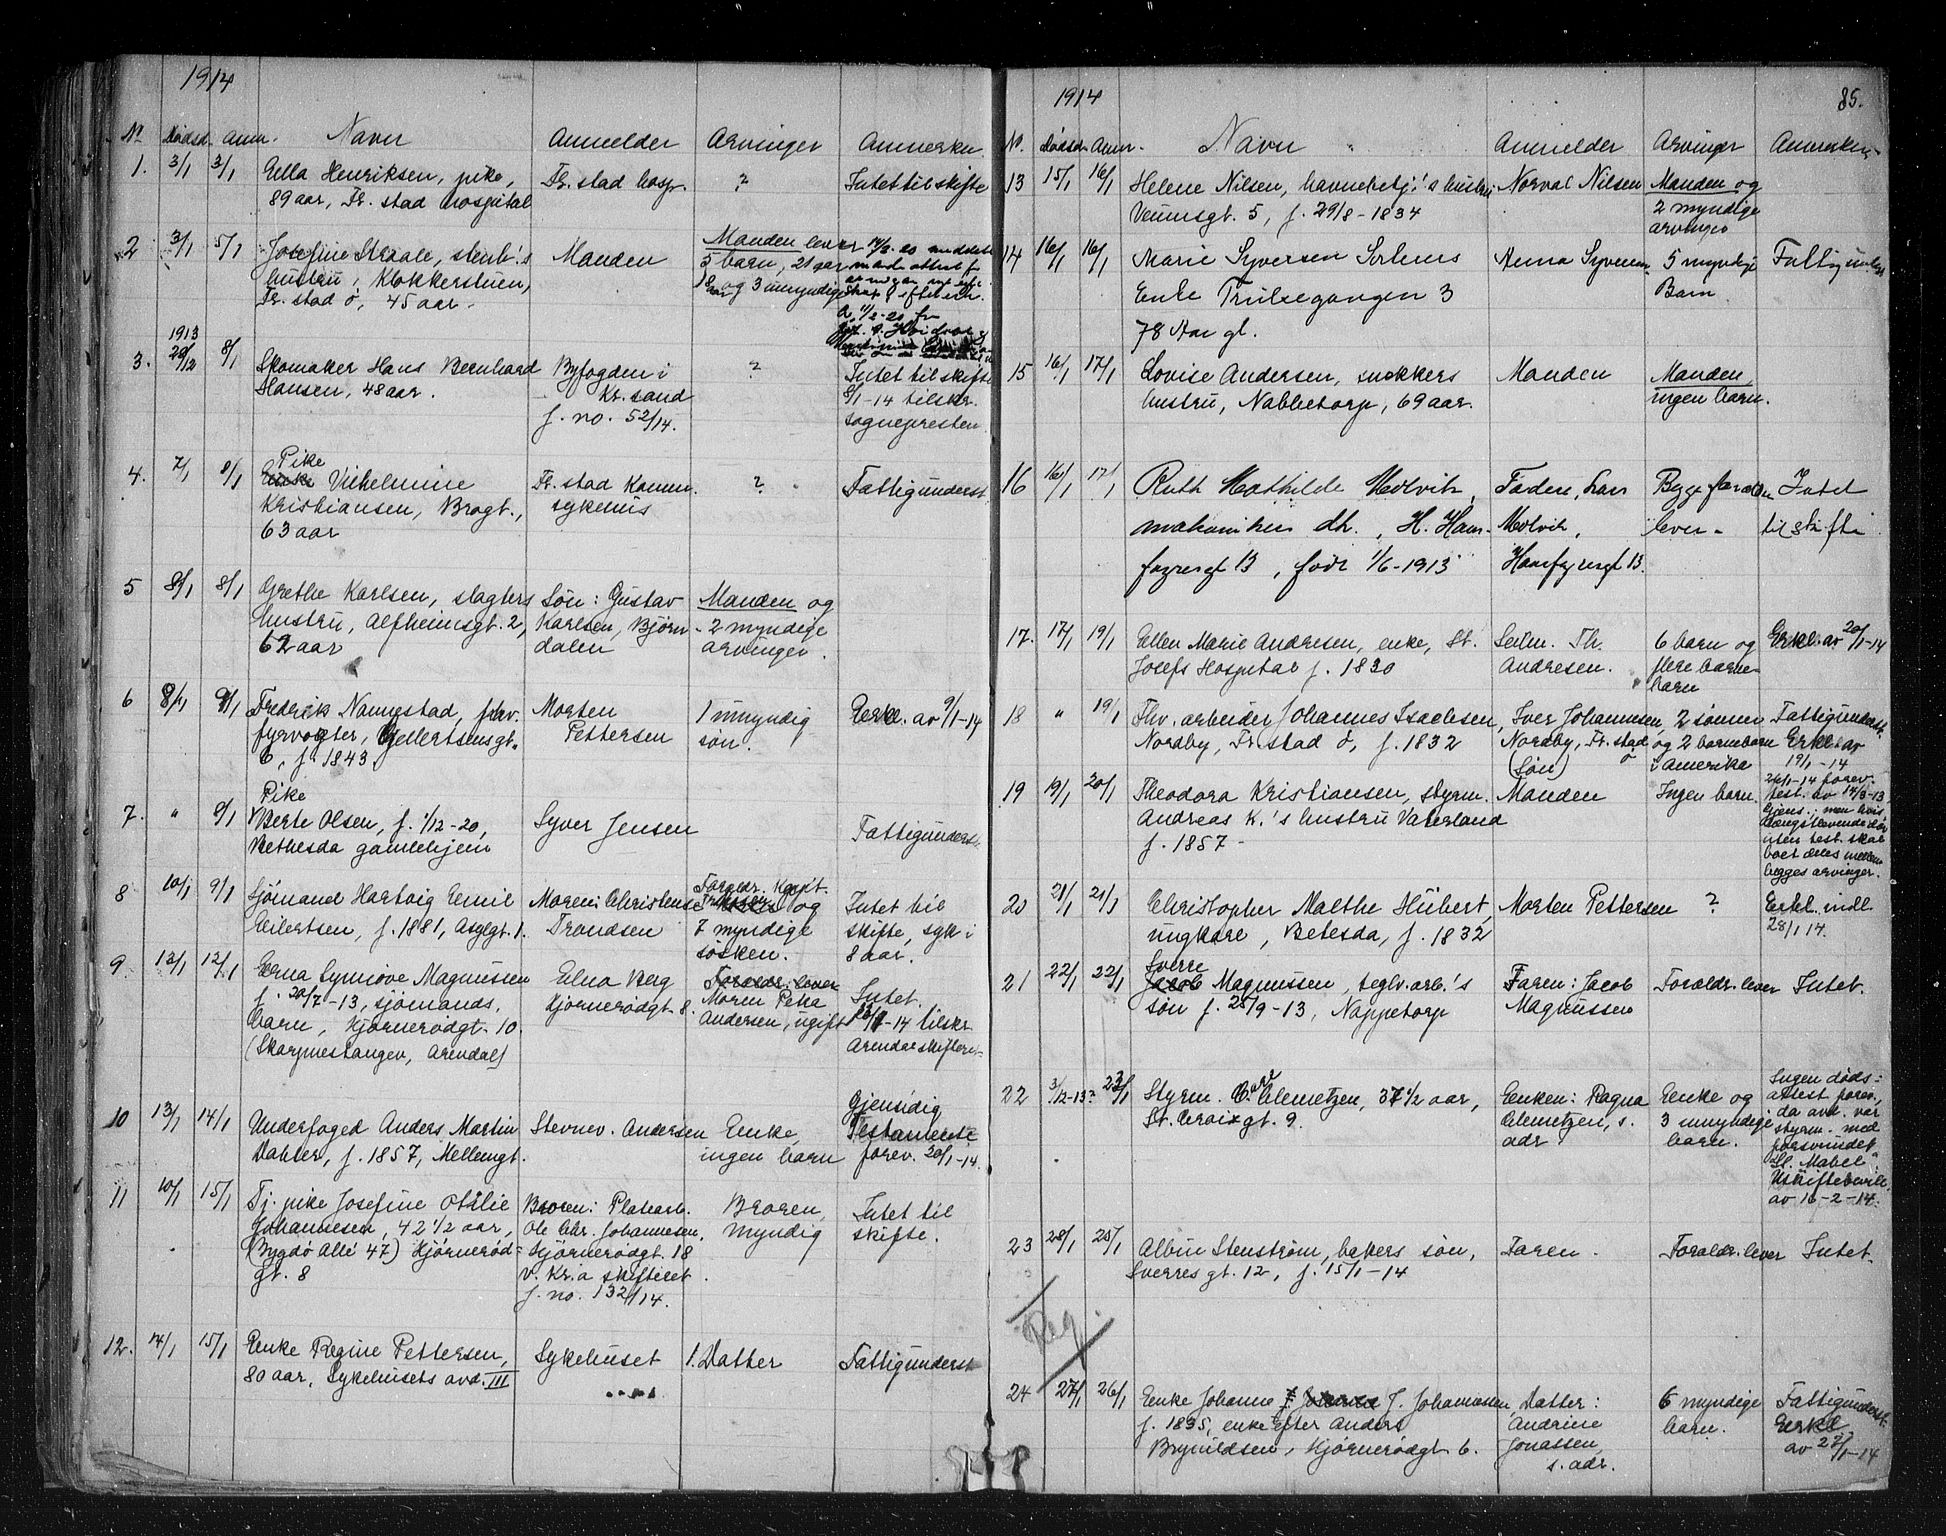 1914
No Dødsd. Anm. Navn Anmelder Arvinger Anmerkn.
1. 3/1 3/1 Ella Henriksen, pike, Fr. stad hosp. ? Intet til skifte
89 aar, Fr. stad hospital
2 3/1 5/1 Josefine Skaale, stenh.'s Manden Manden lever
hustru, Klokkerstuen, 5 barn, 21 aar
Fr. stad ö, 45 aar. 18 aar og 3 umyndige
1913
3. 29/12 8/1 Skomaker Hans Bernhard Byfogden i ? Intet til skifte
Hansen, 48 aar. Kr. sand 8/1-14 tilskr.
j. no. 52/14. sognepresten
Pike
4. 7/1 8/1 Vilhelmine Fr. stad Komm. ? Fattigunderst
Kristiansen, Brogt., sykehus
63 aar
5 8/1 8/1 Grethe Karlsen, slagters Søn: Gustav Manden og
hustru, Alfheimsgt. 2, Karlsen, Bjørn- 2 myndige
62 aar dalen arvinger.
6 8/1 9/1 Fredrik Nannestad, fhv. Morten 1 umyndig Erkl. av 9/1-14
fyrvogter, Gjellertsensgt. Pettersen søn.
6, f. 1843
Pike
7. " 9/1 Berte Olsen, f. 1/12-20, Syver Jensen Fattigunderst.
Bethesda gamlehjem
8 10/1 9/1 Sjømand Hartvig Emil Moren: Christense Foreldr. Intet til
Eilertsen, f. 1881, Asylgt. 1. Trondsen og 7 myndige skifte, syk i
søsken. 8 aar.
9 13/1 12/1 Erna Synnøve Magnussen Edna Berg Foreldr. lever
f. 20/7-13, sjømands. Hjørnerødgt. 8. Moren Petra Intet.
barn, Hjørnerødgt. 10. Andersen, ugift -14 tilskr
(Skarpnestangen, Arendal) Arendal skifteret
10 13/1 14/1 Underfoged Anders Martin Stevnev. Andersen Enke, Gjensidig
Dahler, f. 1857, Mellemgt. ingen barn Testamente
forev. 20/1-14.
11 10/1 15/1 Tj. pike Josefine Otilie Broren: Platearb. Broren, Intet til
Johannesen, 42 1/2 aar, Ole Chr. Johannesen, myndig skifte.
(Bygdö Allé 47) Hjørnerød- Hjørnerødgt. 18
gt. 8 v. Kr.a skifteret
j. no. 132/14.
12. 14/1 15/1 Enke Regine Pettersen, Sykehuset 1. Datter Fattigunderst
80 aar, Sykehusets avd. III
1914 85.
No. Dødsd. Anm. Navn Anmelder Arvinger Anmerkn.
13 15/1 16/1 Helene Nilsen, havnebetj.'s hustru Norval Nilsen Manden og
Veumsgt. 5, f. 29/8-1834 2 myndige
arvinger
14 16/1 16/1 Marie Syversen Anna Syversen 5 myndige Fattigunderst
Enke Trulsegangen 3 Barn
78 Aar gl.
15 16/1 17/1 Lovise Andersen, snekkers Manden Manden,
hustru, Nabbetorp, 69 aar. ingen barn.
16 16/1 17/1 Ruth Mathilde Molvik, Faderen, Begge foreldre Intet
mekaniker dtr., H. Hans- Molvik, lever. til skifte
fayesgt 13, født 1/6-1913 Hansfayesgt 13.
17. 17/1 19/1 Ellen Marie Andresen, enke, St. Seilm. Th. 6 barn og Erkl. av 20/1-14
Josefs Hospital f. 1830 Andresen. flere barne-
barn
18 " 19/1 Fhv. arbeider Johannes Isachsen, Iver Johannesen, 2 sønner Fattigunderst.
Nordby, Fr. stad ö, f. 1832 Nordby, Fr. stad ö og 2 barnebarn Erkl. av
(Søn) i Amerika 19/1-14
19 19/1 20/1 Theodora Kristiansen, styrm. Manden Ingen barn. 26/1-14 forev.
Andreas K.'s hustru Vaterland test. av 14/3-13
f. 1857 - gjens., men hvis
længstlevende dør
uten test. skal
boet deles mellem
begges arvinger.
20 21/1 21/1 Christopher Malthe Hübert, Morten Pettersen ? Erkl. indl.
ungkare, Betesda, f. 1832 28/1 14.
Sverre
21 22/1 22/1 Jacob Magnussen, teglv. arb.'s Faren: Jacob Foreldr. lever Intet.
søn f. 25/9-13, Nappetorp Magnussen
22 3/12-13? 23/1 Styrm. Clemetzen, 37 1/2 aar, Enken: Ragna Enke og Ingen døds-
St. Croixgt. 9. Clemetzen, s. 3 umyndige attest forev.,
adr barn. da avd. var
styrm. med
forsvundet
Sl. "Mabel".
Uskiftebevill.
av 16-2-14.
23 28/1 25/1 Albin Stenström, bakers søn, Faren. Foreldr. lever Intet.
Sverres gt. 12, f. 15/1-14
Reg.
24 27/1 26/1 Enke Johanne J. Johannesen, Datter: 6 myndige Fattigunderst.
f. 1835, enke efter Anders Andrine barn. Erkl
Brynildsen, Hjørnerødgt 6. Jonassen, av 27/1-14
s. adr.